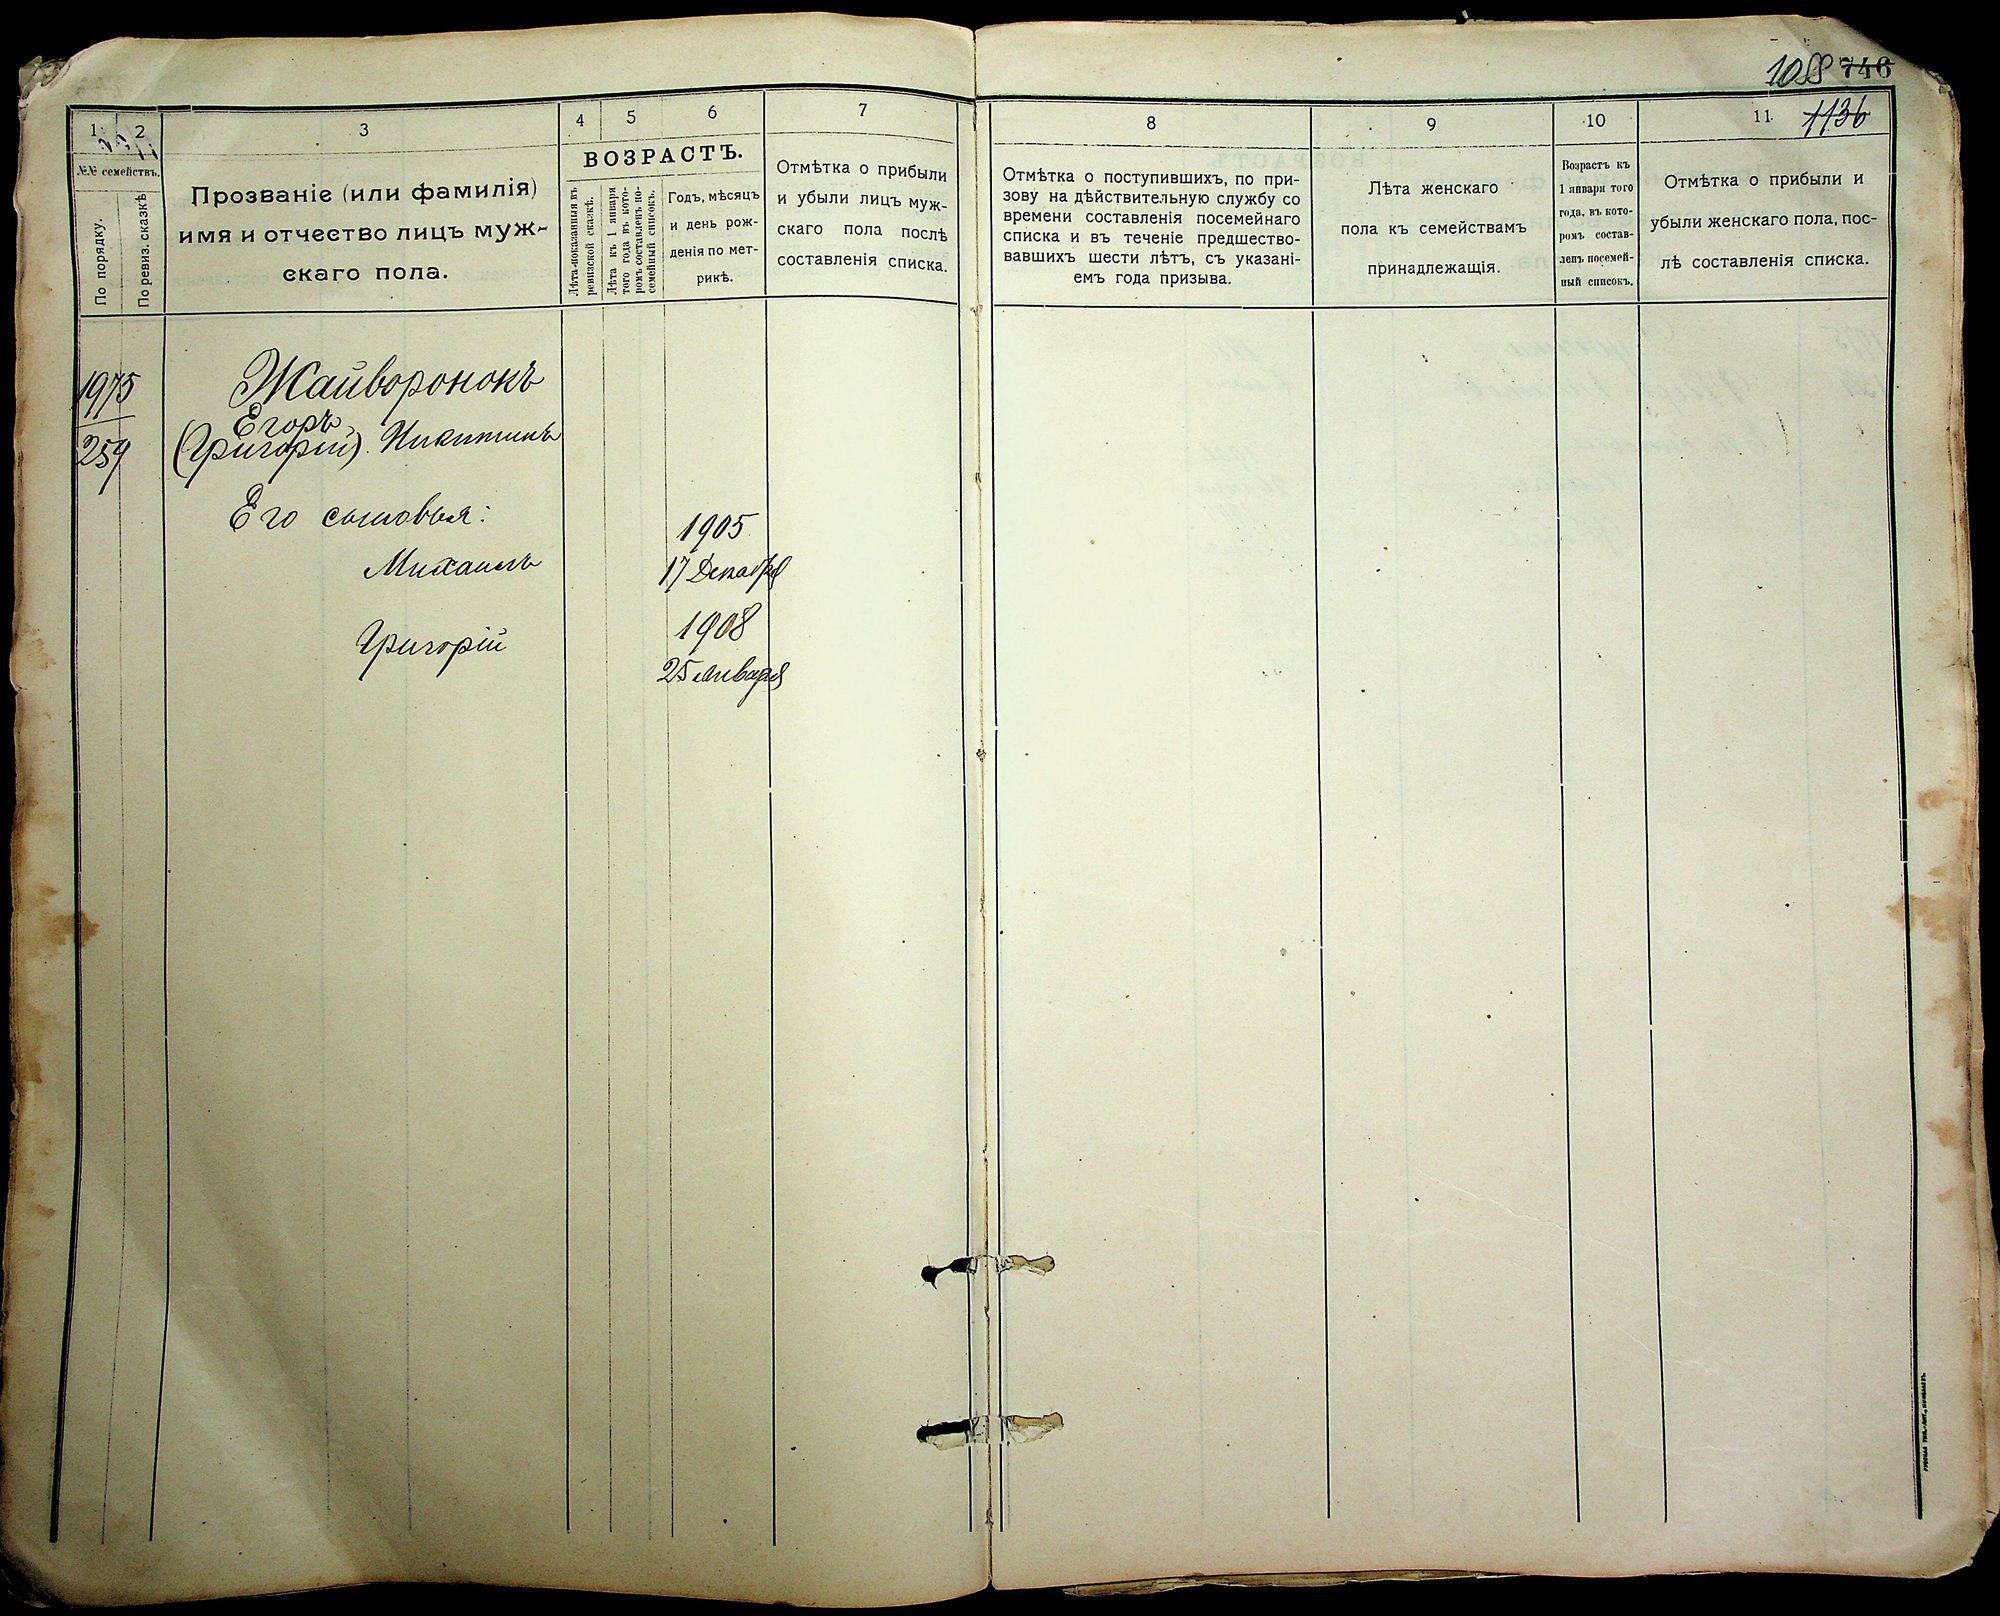 1088 746
1 2 3 4 5 6 7
№№ семействъ.
По порядку.
По ревиз. сказкѣ
Прозваніе (или фамилія)
имя и отчество лицъ муж-
скаго пола.
ВОЗРАСТЪ.
Лѣта показанныя въ
ревизской сказкѣ.
Лѣта къ 1 января
того года въ кото-
ромъ составленъ по-
семейный списокъ.
Годъ, мѣсяцъ
и день рож-
денія по мет-
рикѣ.
Отмѣтка о прибыли
и убыли лицъ муж-
скаго пола послѣ
составленія списка.
1975
259
Жайворонокъ
Егоръ
(Григорій). Никитинъ
Его сыновья:
Михаилъ
1905
17 Декабря
Григорій
1908
25 января
8 9 10 11 1136
Отмѣтка о поступившихъ, по при-
зову на дѣйствительную службу со
времени составленія посемейнаго
списка и въ теченіе предшество-
вавшихъ шести лѣтъ, съ указані-
емъ года призыва.
Лѣта женскаго
пола къ семействамъ
принадлежащія.
Возрастъ къ
1 января того
года, въ кото-
ромъ состав-
ленъ посемей-
ный списокъ.
Отмѣтка о прибыли и
убыли женскаго пола, пос-
лѣ составленія списка.